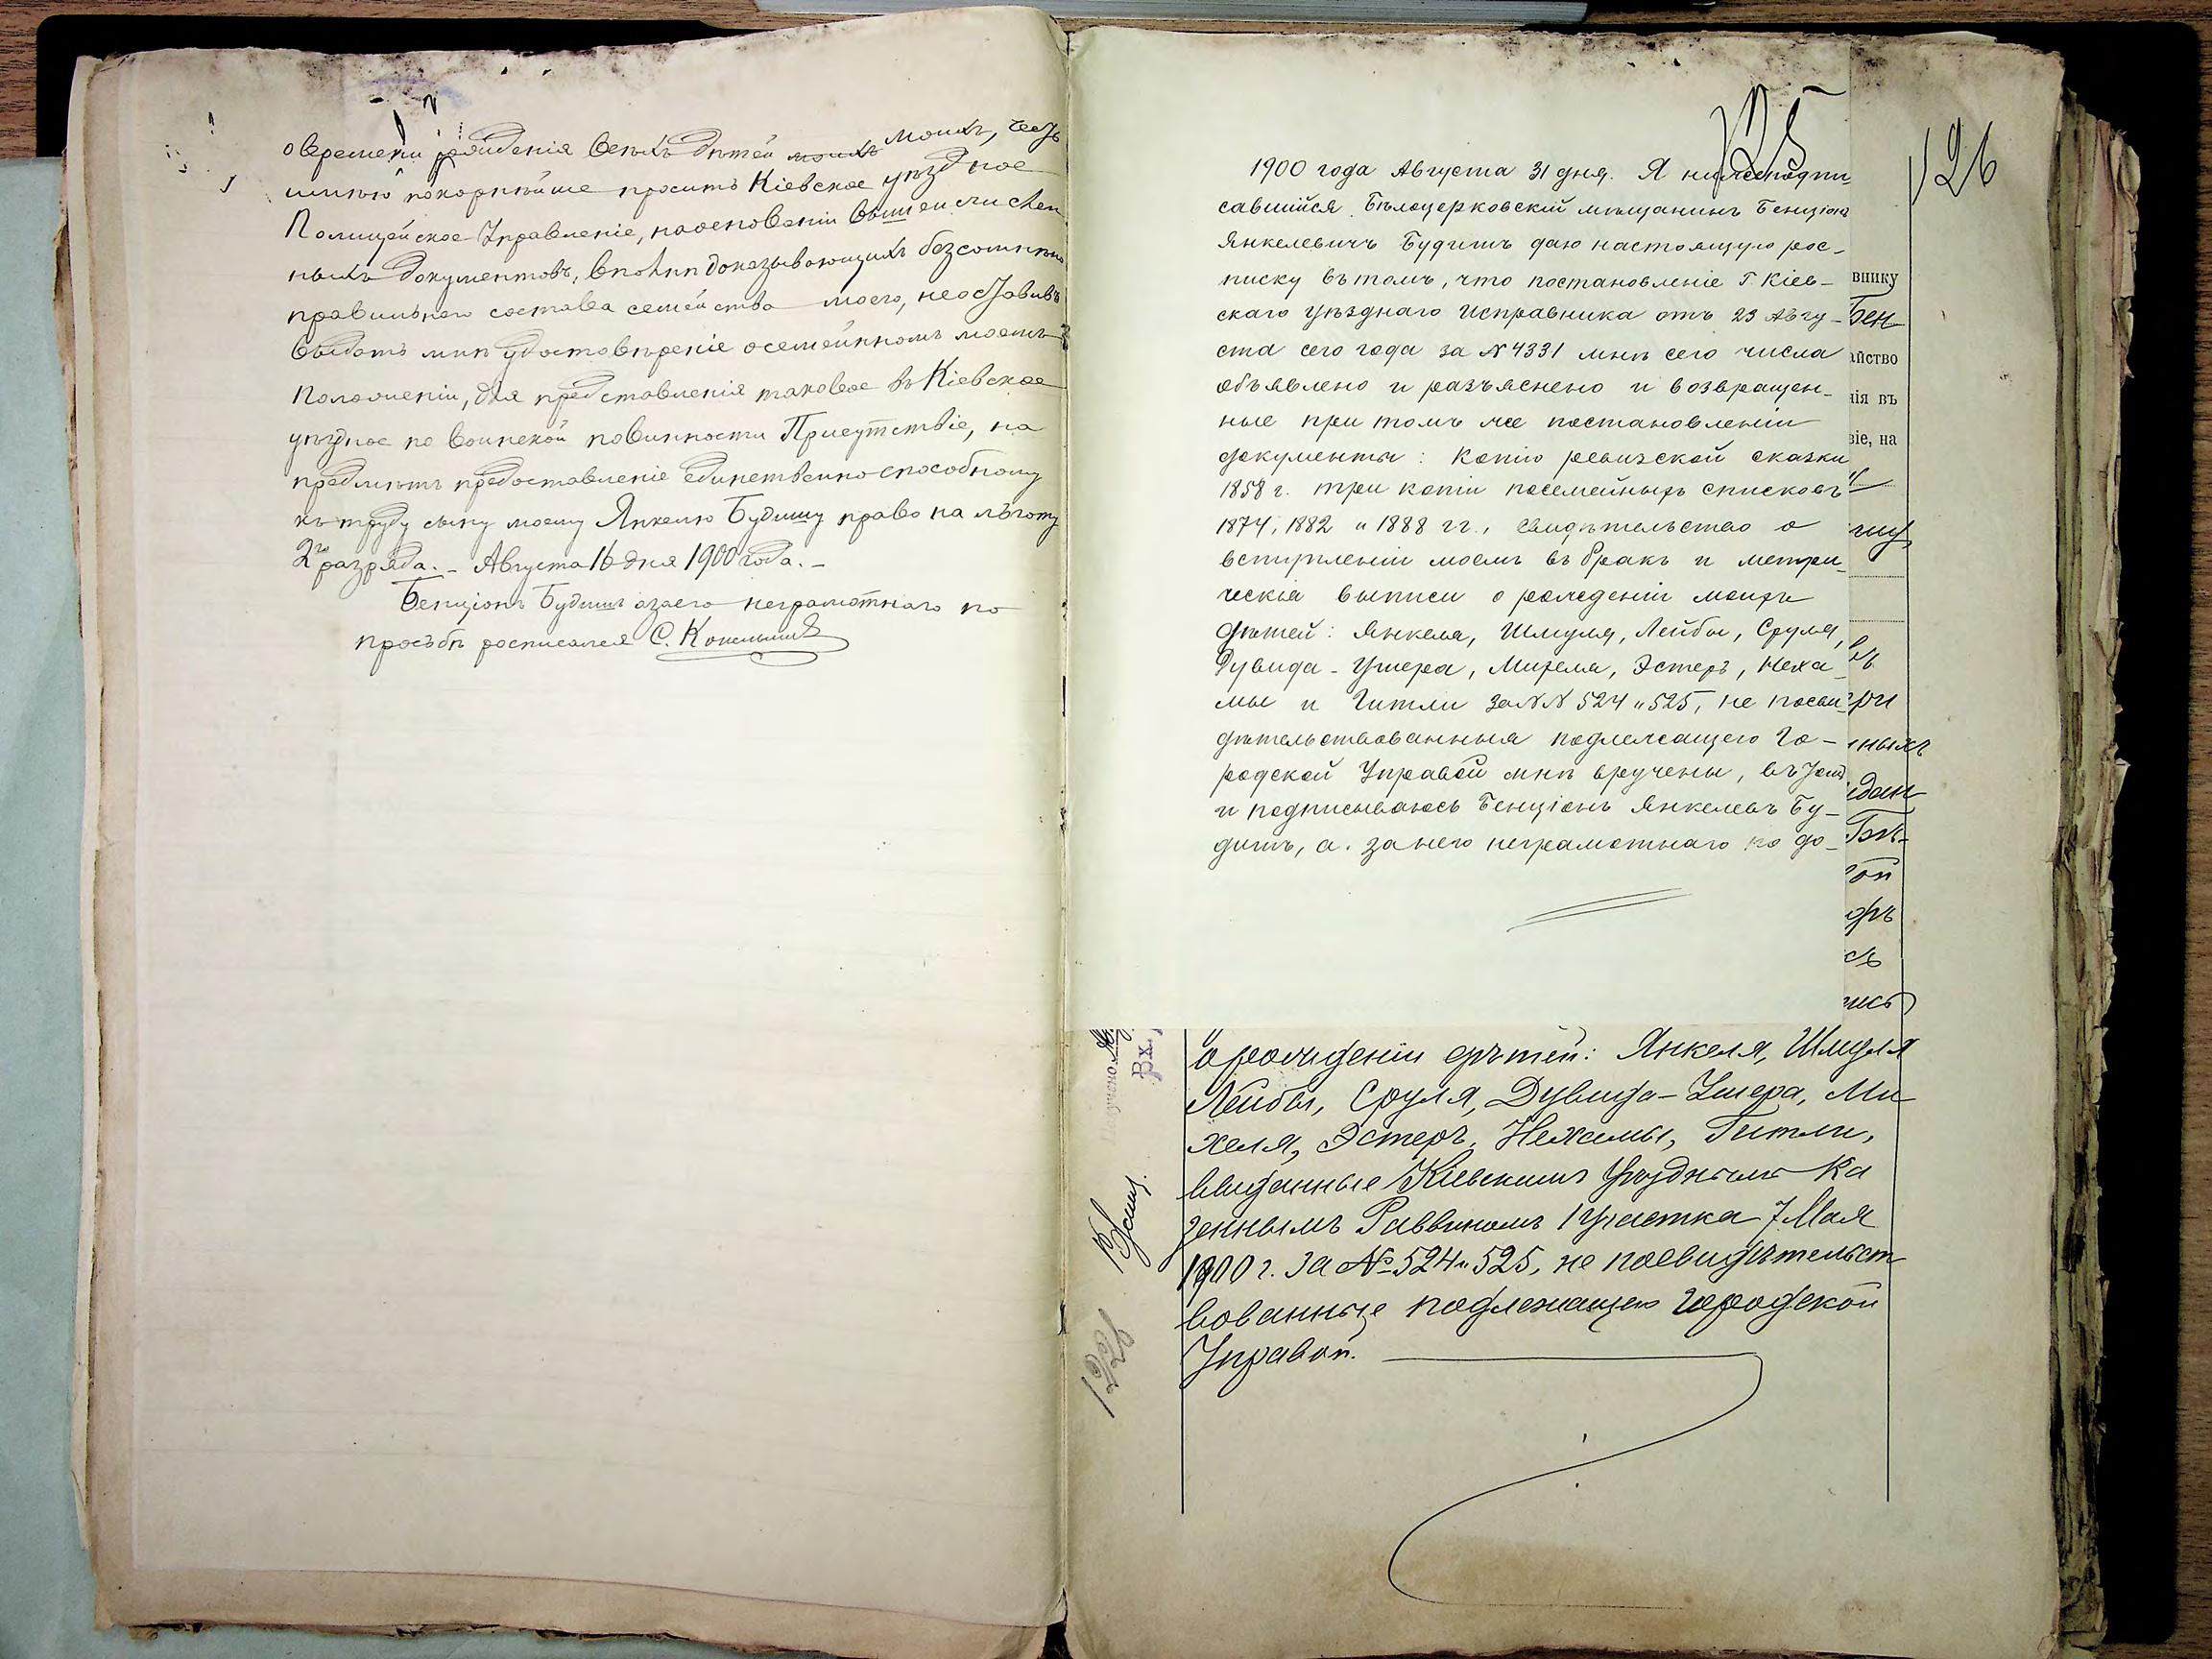 о времени рожденія всѣхъ дѣтей моихъ моихъ, честь
имѣю покорнѣйше просить Кіевское уѣздное
Полицейское Управленіе, на основаніи вышеисчислен
ныхъ документовъ, вполнѣ доказывающихъ безсомнѣнно
правильнаго состава семейства моего, не оставивъ
выдать мнѣ удостовѣреніе о семейномъ моемъ
положеніи, для представленія таковое въ Кіевское
уѣздное по воинской повинности Присутствіе, на
предметъ предоставленіе единственно способному
къ труду сыну моему Янкелю Будишу право на льготу
2го разряда. - Августа 16 дня 1900 года. -
Бенціонъ Будишъ а за его неграмотнаго по
просьбѣ росписался С.
125
126
1900 года Августа 31 дня. Я нижеподпи-
савшийся Бѣлоцерковскій мѣщанинъ Бенціонъ
Янкелевичъ Будишъ даю настоящую рос-
писку въ томъ, что постановленіе Г. Кіев-
скаго Уѣзднаго Исправника отъ 23 Авгу-
ста сего года за № 4331 мнѣ сего числа
объявлено и разъяснено и возвращен-
ные при томъ же постановленіи
документы: копію ревизской сказки
1858 г. три копіи посемейныхъ списковъ
1874, 1882 и 1888 гг., свидѣтельство о
вступленіи моемъ въ бракъ и метри-
ческія выписи о рожденіи моихъ
дѣтей: Янкеля, Шмуля, Лейбы, Сруля,
Дувида-Ушера, Михеля, Эстеръ, Неха-
мы и Гитли за №№ 524 и 525, не посви-
дѣтельствованныя подлежащего Го-
родской Управой мнѣ вручены, въ томъ
и подписываюсь Бенціонъ Янкелевъ Бу-
дишъ, а за него неграмотнаго по до-
внику
Бен
айство
нія въ
віе, на
ри
ныхъ
Бѣ-
ой
ись
о рожденіи дѣтей: Янкеля, Шмуля
Лейбы, Сруля, Дувида-Ушера, Ми
хеля, Эстеръ, Нехамы, Гитли,
выданные Кіевскимъ Уѣзднымъ Ка
зеннымъ Раввиномъ 1 участка 7 Мая
1900 г. за № 524 и 525, не посвидѣтельст
вованные подлежащею Городской
Управой.
Вх.
126